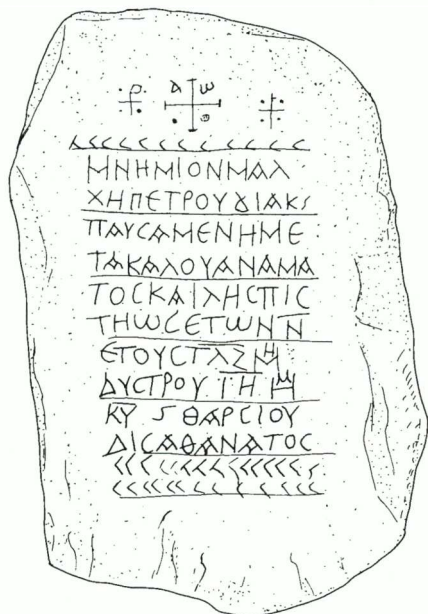 Α Ω
ΜΝΗΜΙΟΝΜΑΛ
ΧΗΠΕΤΡΟΥΔΙΑΚS
ΠΑΥCΑΜΕΝΗΜΕ
ΤΑΚΑΛΟΥΑΝΑΜΑ
ΤΟCΚΑΙΛΗCΠΙC
ΤΗΩCΕΤΩΝΝ
ΕΤΟΥCΤΛΖ ΜΗ
ΔΥCΤΡΟΥ ΙΗ ΗΜ
ΚΥ S ΘΑΡCΙΟΥ
ΔΙCΑΘΑΝΑΤΟC